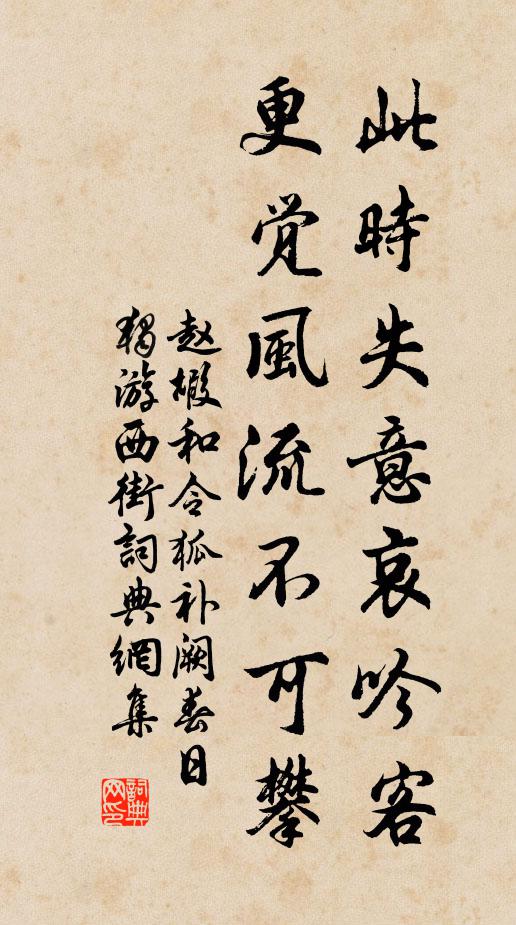 此時失意哀吟客
更觉風流不可攀
赵嘏和令狐补阙春日
獨游西街詞典網集
詞典网印